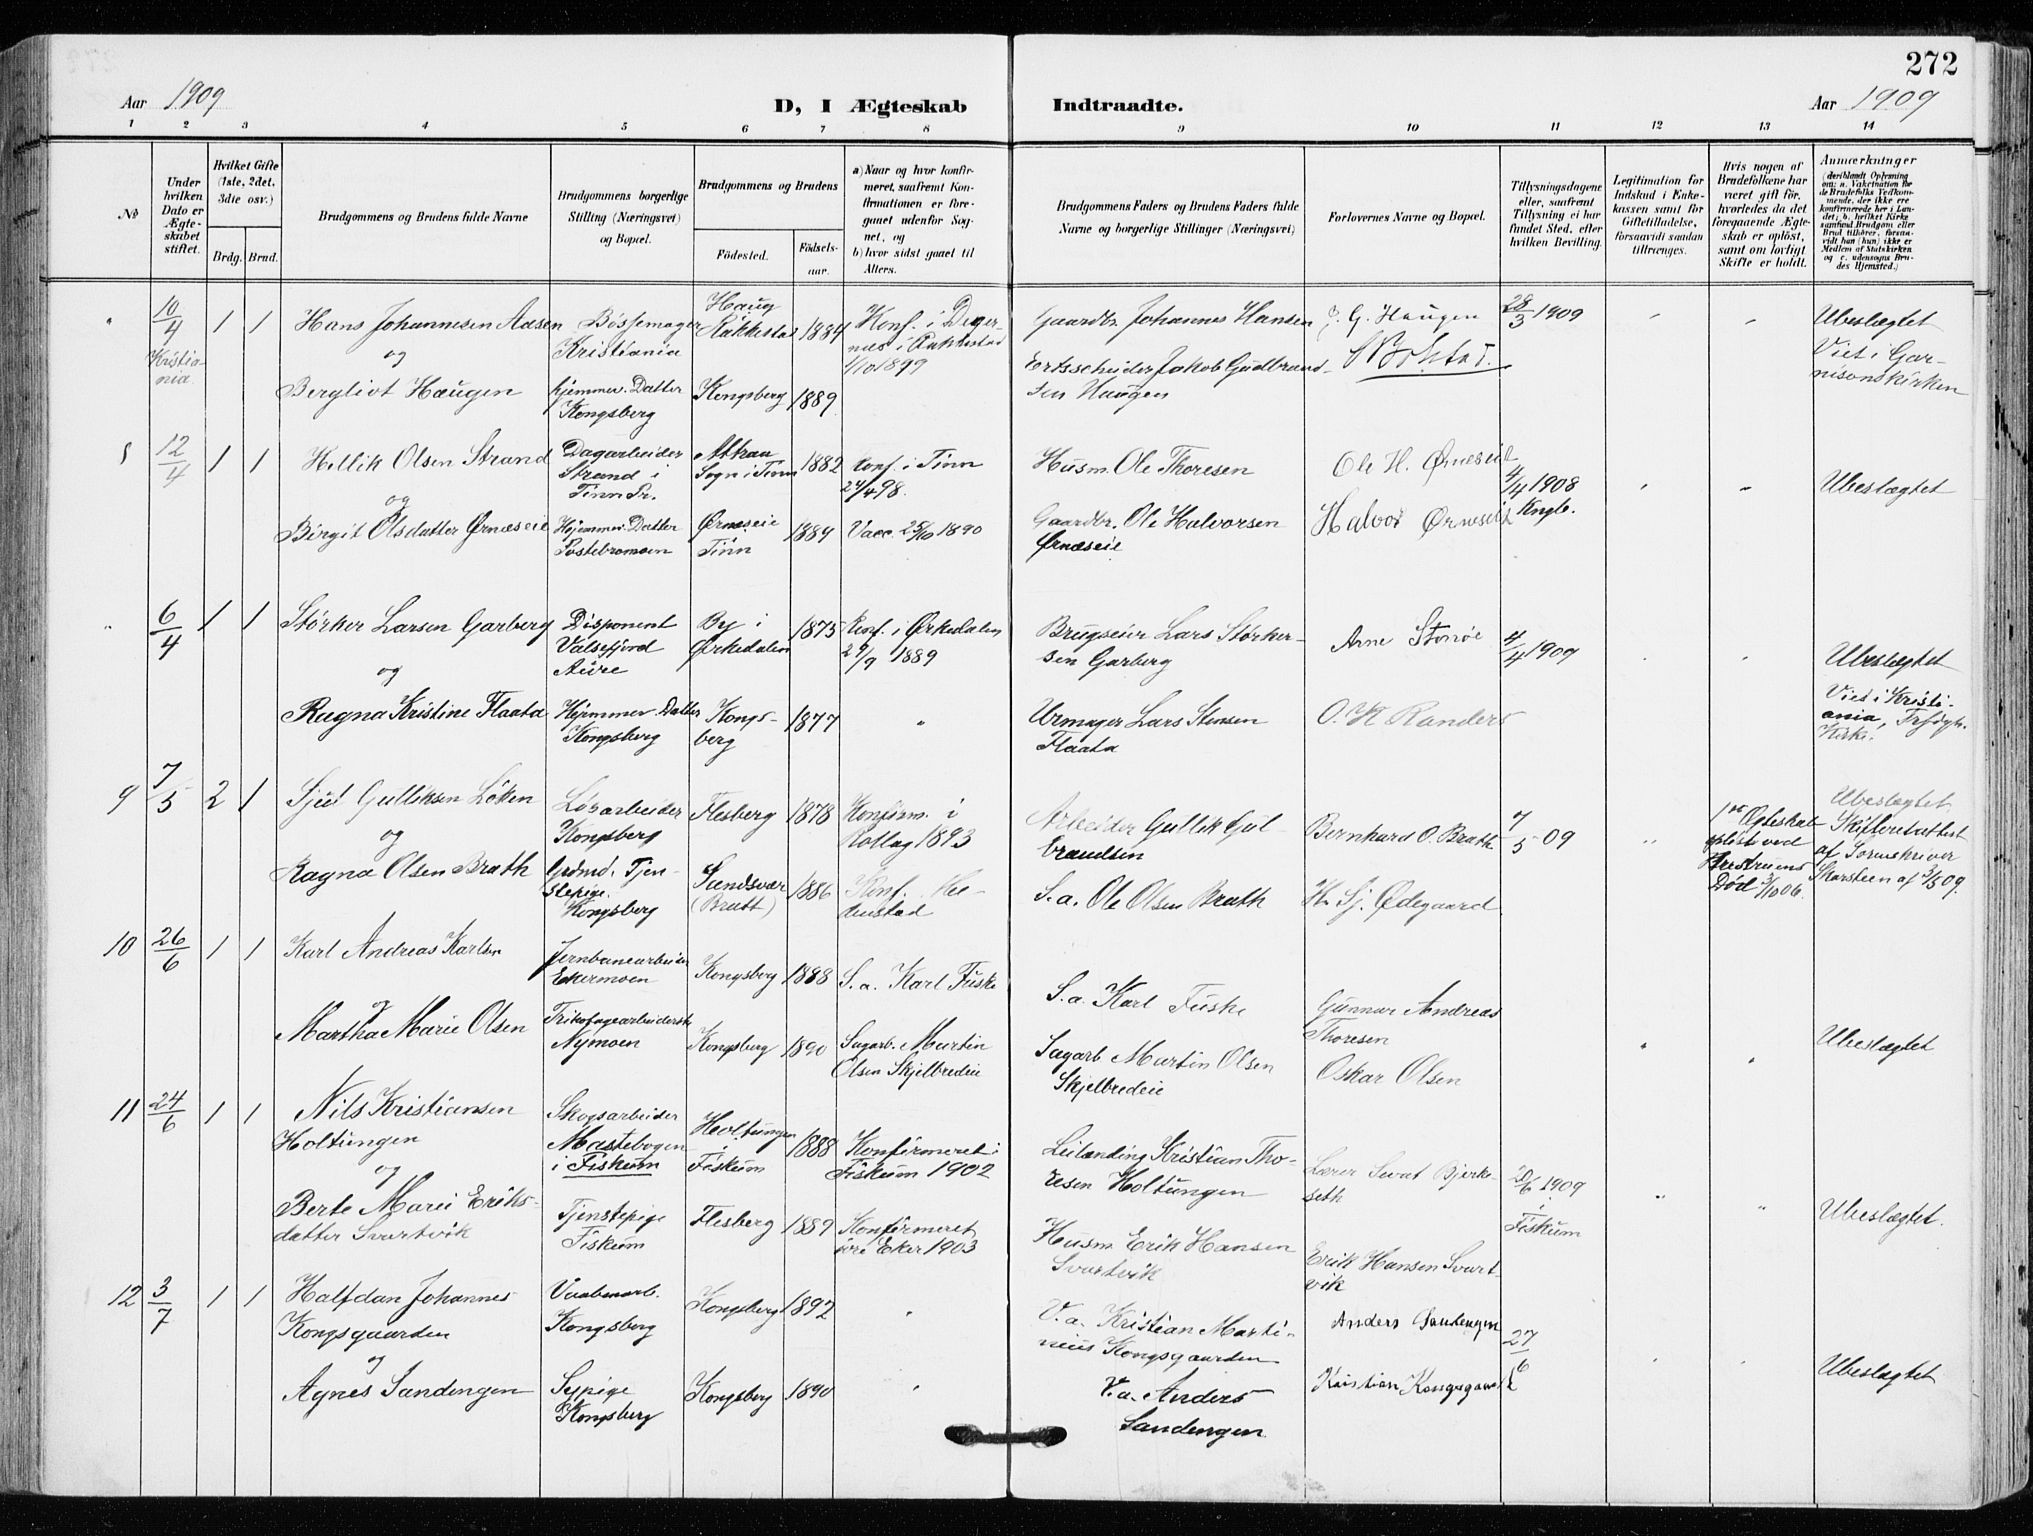 272
Aar 1909
D, I Ægteskab
Indtraadte.
Aar 1909
1 2 3 4 5 6 7 8 9 10 11 12 13 14
No
Under hvilken Dato er Ægteskabet stiftet.
Hvilket Gifte (1ste, 2det, 3die osv.)
Brdg. Brud.
Brudgommens og Brudens fulde Navne
Brudgommens borgerlige Stilling (Næringsvei) og Bopæl.
Brudgommens og Brudens
Fødested.
Fødselsaar.
a) Naar og hvor konfirmeret, saafremt Konfirmationen er foregaaet udenfor Sognet, og
b) hvor sidst gaaet til Alters.
Brudgommens Faders og Brudens Faders fulde Navne og borgerlige Stillinger (Næringsvei)
Forlovernes Navne og Bopæl.
Tillysningsdagene eller, saafremt Tillysning ei har fundet Sted, efter hvilken Bevilling.
Legitimation for Indskud i Enkekassen samt for Giftetilladelse, forsaavidt saadan tiltrænges.
Hvis nogen af Brudefolkene har været gift før, hvorledes da det foregaaende Ægteskab er opløst, samt om lovligt Skifte er holdt.
Anmærkninger
(deriblandt Oplysning om: a. Vakcination for de Brudefolks Vedkommende, der ikke ere konfirmerede her i Landet; b. hvilket Kirkesamfund Brudgom eller Brud tilhører, forsaavidt han (hun) ikke er Medlem af Statskirken og c. udensogns Brudes Hjemsted.)
" 10/4 Kristiania. 1 1
Hans Johannesen Aasen
og
Bergliot Haugen
Bøssemager
Kristiania
hjemmev. Datter
Kongsberg
Haug
Rakkestad 1884
Kongsberg 1889
Konf. i Degernes i Rakkestad
1/10 1899
Gaardbr. Johannes Hansen
Ertsscheider Jakob Gudbrandsen Haugen
J. G. Haugen
28/3 1909
Ubeslægtet
Viet i Garnisonskirken
12/4 1 1
Hellik Olsen Strand
og
Birgit Olsdatter Ørnæseie
Dagarbeider
Strand i
Tinn Pr.
Hjemmev. Datter
Atraa
Sogn i Tinn 1882
Ørnæseie
Tinn
Konf. i Tinn
24/4 98.
Vacc. 25/10 1890
Husm. Ole Thoresen
Gaardbr. Ole Halvorsen
Ørnæseie
Ole H. Ørneseie
Halvor Ørneseie
4/4 1908
Kngb.
Ubeslægtet
" 6/4 1 1
Størker Larsen Garberg
og
Ragna Kristine Flaata
Disponent
Valsefjord
Aure
Hjemmev. Datter
Kongsberg
By i
Ørkedalen 1875
Kongsberg 1877
Konf. i Ørkedalen
29/9 1889
Brugseier Lars Størkersen Garberg
Urmager Lars Stensen
Flaata
Arne Stonøe
O. K Randers
4/4 1909
Ubeslægtet
Viet i Kristiania, Trefoldigh. Kirke.
9 7/5 2 1
Sjul Gulliksen Løken
og
Ragna Olsen Brath
Løsarbeider
Kongsberg
Tjenstepige
Kongsberg
Flesberg 1878
Sandsvær
(Bratt) 1886
Konfirm. i
Rollag 1893
Konf. Hedenstad
Arbeider Gullik Gulbrandsen
S.a. Ole Olsen Brath
Bernhard O. Brath
K. Sj. Ødegaard
7/5 09
1ste Ægteskab opløst ved Hustruens Død 3/10 06.
Ubeslægtet
Skifteretsattest af Sorenskriver Skarsteen af 3/5 09.
10 26/6 1 1
Karl Andreas Karlsen
og
Martha Marie Olsen
Jernbanearbeider
Ekermoen
Trikotagearbeiderske
Nymoen
Kongsberg 1888
Kongsberg 1890
S.a. Karl Fuske
Sagarb. Martin
Olsen Skjelbredeie
S.a. Karl Fuske
Sagarb Martin Olsen
Skjelbredeie
Gunnar Andreas
Thoresen
Oskar Olsen
Ubeslægtet
11 24/6 1 1
Nils Kristiansen
Holtungen
og
Berte Marei Eriksdatter Svartvik
Skogsarbeider
Mastebogen
i Fiskum
Tjenstepige
Fiskum
Holtungen
Fiskum 1888
Flesberg 1889
Konfirmeret i
Fiskum 1902
Konfirmeret
øvre Eker 1903
Leilænding Kristian Thoresen Holtungen
Husm Erik Hansen
Svartvik
Lærer Sevat Bjerkeseth
Erik Hansen Svartvik
20/6 1909
i
Fiskum
Ubeslægtet.
12 3/7 1 1
Halfdan Johannes
Kongsgaarden
og
Agnes Sandengen
Vaabenarb.
Kongsberg
Sypige
Kongsberg
Kongsberg 1892
Kongsberg 1890
V.a. Kristian Martinius Kongsgaarden
V.a. Anders
Sandengen
Anders Sandengen
Kristian Kongsgaard
27/6
Ubeslægtet